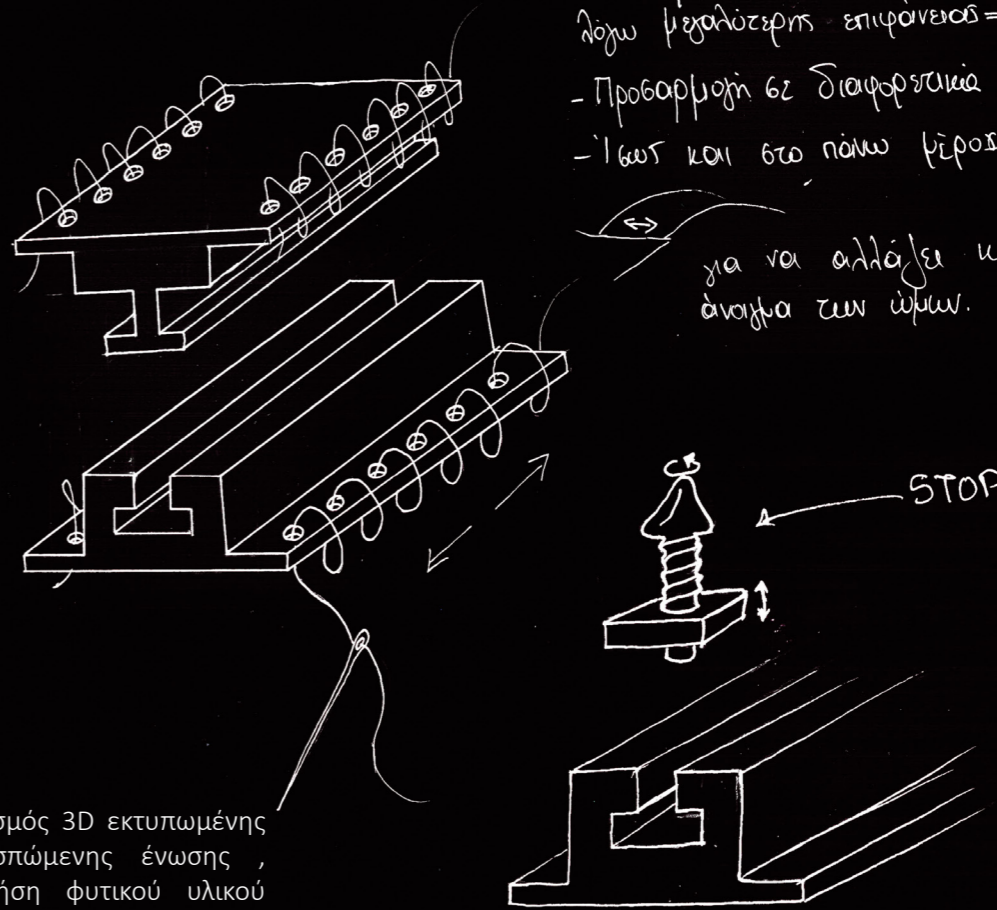 λόγω μεγαλύτερης επιφάνειας=
- Προσαρμογή σε διαφορετικά
- Ίσως και στο πάνω μέρος
για να αλλάζει κ
άνοιγμα των ώμων.
STOP
σμός 3D εκτυπωμένης
σπώμενης ένωσης ,
ήση φυτικού υλικού